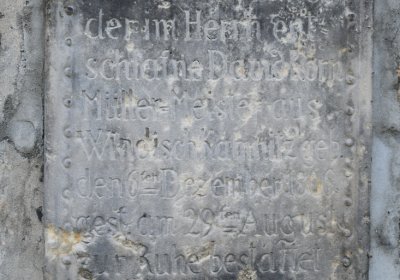 der im Herrn ent-
schlafne David Korn
Müller-Meister aus
Windisch Kamnitz geb.
den 6ten Dezember
gest. am 29ten August
zur Ruhe bestattet